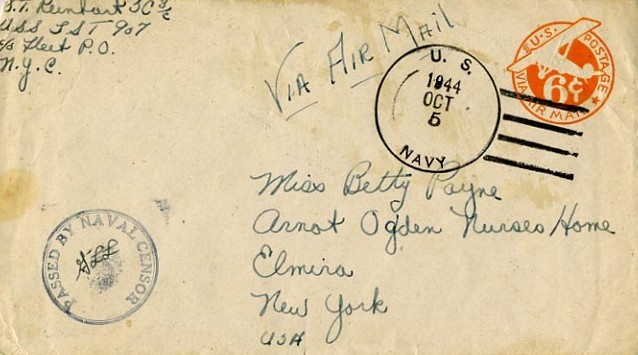 S.T. Reinhart SC 3/c
USS LST 907
c/o Fleet P.O.
N.Y.C.
VIA AIR MAIL
U. S.
1944
OCT
5
NAVY
U.S. POSTAGE
6¢
VIA AIR MAIL
Miss Betty Payne
Arnot Ogden Nurses Home
Elmira
New York
USA
PASSED BY NAVAL CENSOR